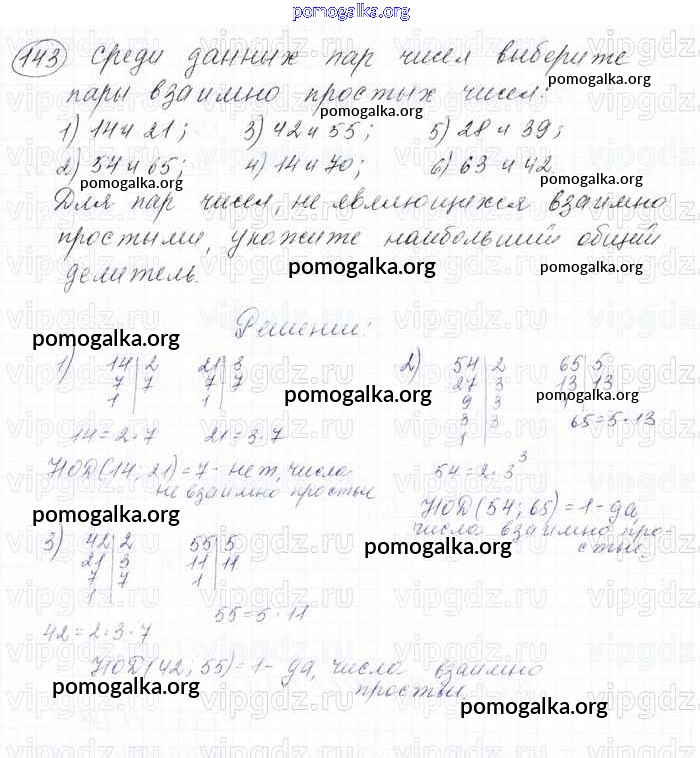 pomogalka.org
143 Среди данных пар чисел выберите
pomogalka.org
пары взаимно простых чисел:
1) 14 и 21; 3) 42 и 55; 5) 28 и 39;
pomogalka.org
2) 54 и 65; 4) 14 и 70; 6) 63 и 42
pomogalka.org pomogalka.org
Для пар чисел, не являющихся взаимно
простыми, укажите наибольший общий
делитель.
pomogalka.org pomogalka.org
Решение:
pomogalka.org
1) 14 | 2 21 | 3
7 | 7 7 | 7
1 1
14 = 2 · 7 21 = 3 · 7
НОД (14; 21) = 7 - нет, числа
не взаимно простые
2) 54 | 2 65 | 5
27 | 3 13 | 13
9 | 3 1
3 | 3
1
65 = 5 · 13
pomogalka.org pomogalka.org
54 = 2 · 3³
НОД (54; 65) = 1 - да,
числа взаимно про-
стые
pomogalka.org
pomogalka.org
3) 42 | 2 55 | 5
21 | 3 11 | 11
7 | 7 1
1
55 = 5 · 11
42 = 2 · 3 · 7
НОД (42; 55) = 1 - да, числа взаимно
простые
pomogalka.org
pomogalka.org
vipgdz.ru